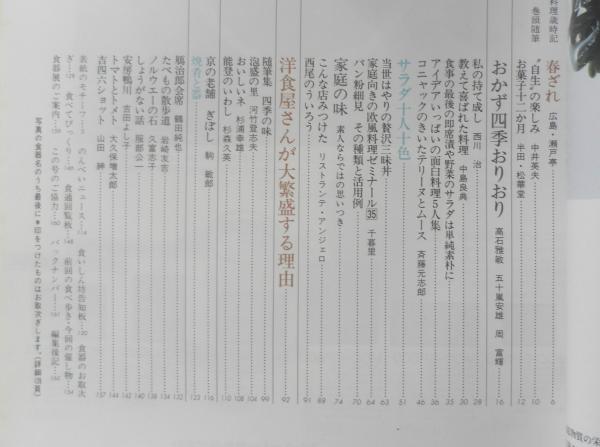 料理歳時記
巻頭随筆
春ざれ 広島・瀬戸亭 6
“自生”の楽しみ 中井英夫 10
お菓子十二か月 半田・松華堂 12
おかず四季おりおり 高石雅敏 五十嵐安雄 周富輝 16
私の持て成し 西川治 28
教えて喜ばれた料理 中島良典 30
食事の最後の即席漬や野菜のサラダは単純素朴に 35
アイデアいっぱいの面白料理5人集 36
コニャックのきいたテリーヌとムース 斉藤元志郎 46
サラダ十人十色 51
当世はやりの贅沢三昧丼 63
家庭向きの欧風料理ゼミナール35 千葉里 64
パン粉細見 その種類と活用例 70
家庭の味 素人ならではの思いつき 74
こんな店みつけた リストランテ・アンジェロ 89
西尾のういろう 91
洋食屋さんが大繁盛する理由 92
随筆集 四季の味 99
泡盛の里 河竹登志夫 104
おいしいネ 杉浦幸雄 108
能登のいわし 杉森久英 110
京の老舗 ぎぼし 駒敏郎 116
焼肴と器 123
鴈治郎会席 鶴田純也 132
たべもの散歩道 岩崎友吉 134
ノルウェーの石 久富志子 138
しょうがない話 服部公一 140
安房鴨川 吉田よし子 142
トマトとトメト 大久保恒太郎 144
吉四六ショット 山田紳 157
表紙のモチーフ…3 のんべいニュース…114 食いしん坊告知板…120 食器のお取次
ぎ…129 食べてびっくり…146 食通回覧板…148 前回の食べ歩き・今回の催し物…154
食器展のご案内… この号のご協力…160 バックナンバー…161 編集後記…162
写真の食器名のうち最後に●印をつけたものはお取次ぎします。(詳細129頁)